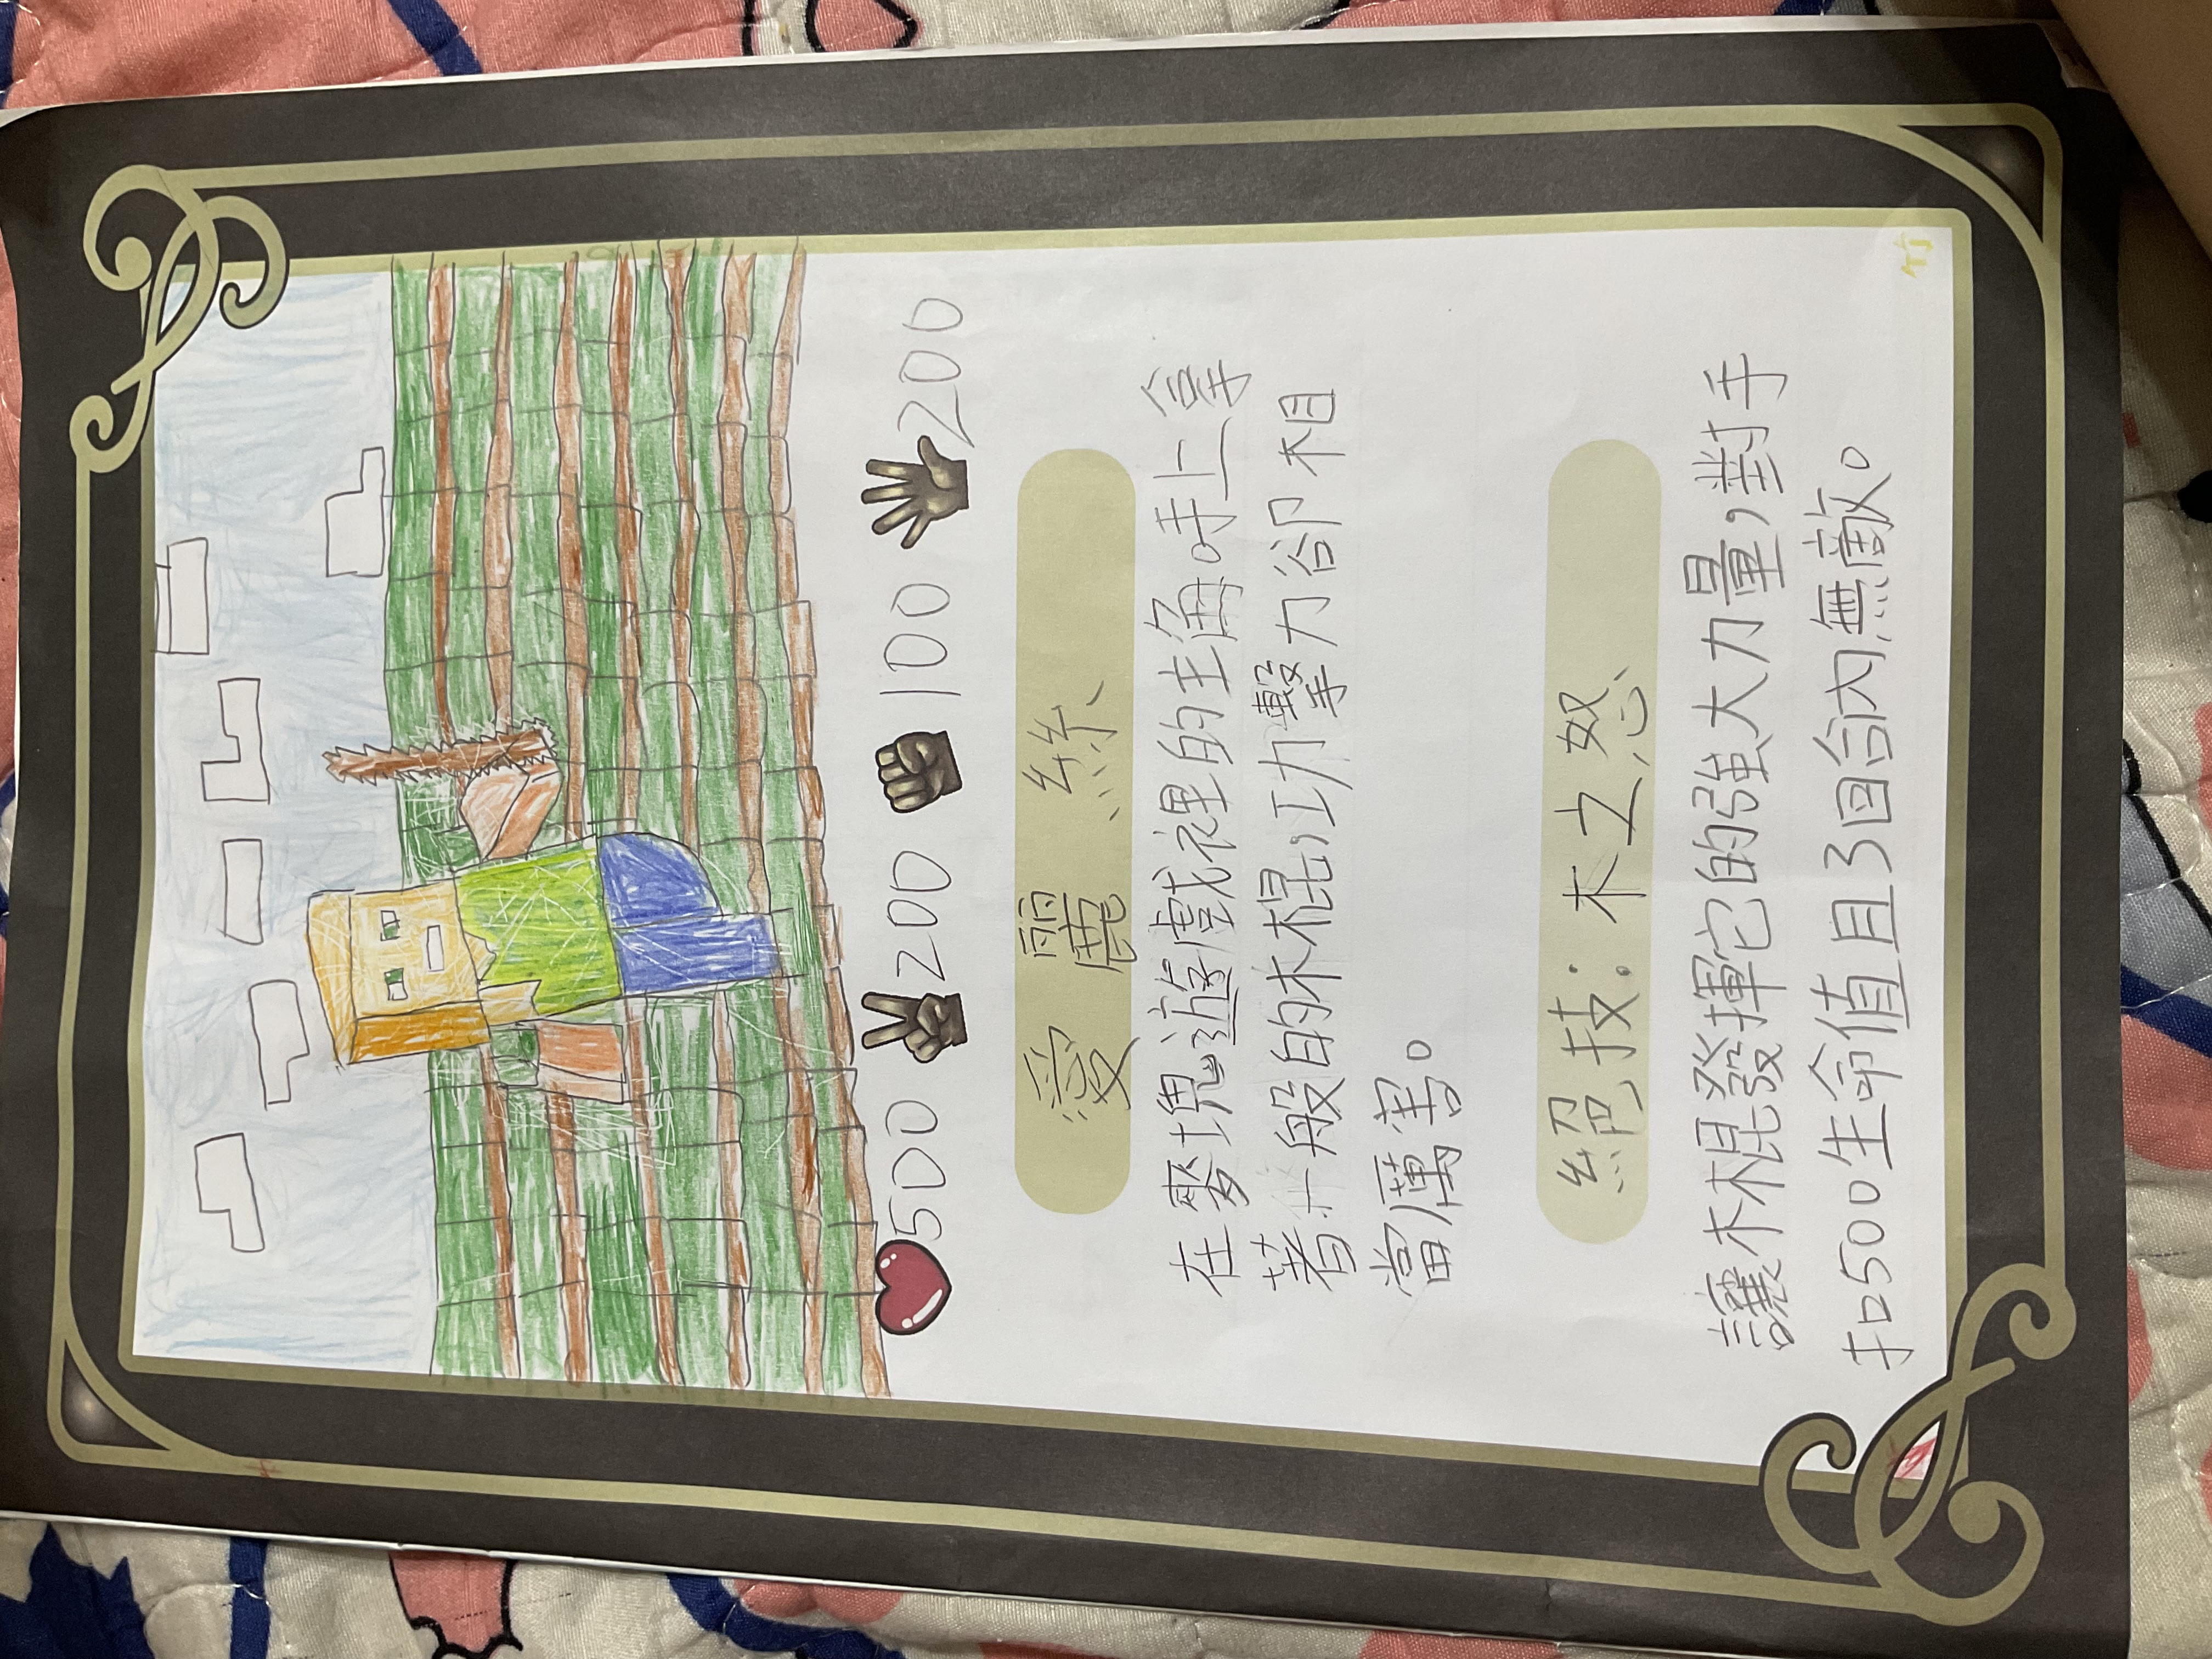 500 200 100 200
愛麗絲
在麥塊遊戲裡的主角。手上拿
著一般的木棍,攻擊力卻相
當厲害。
絕技:木之怒
讓木棍發揮它的強大力量,對手
扣500生命值且3回合內無敵。
竹